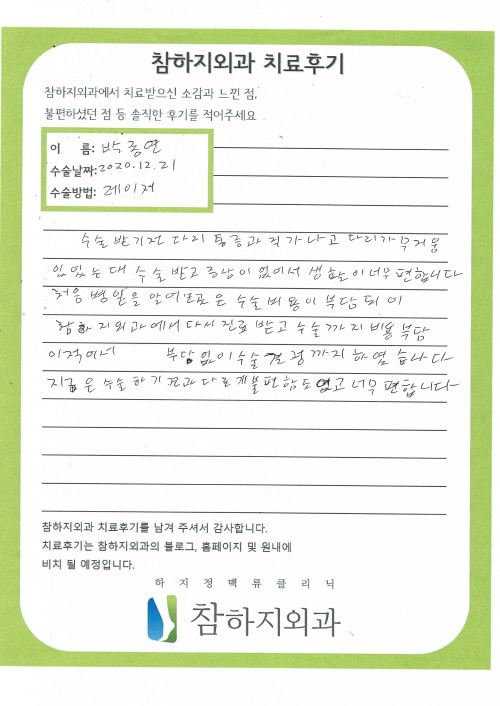 참하지외과 치료후기
참하지외과에서 치료받으신 소감과 느낀 점,
불편하셨던 점 등 솔직한 후기를 적어주세요
이 름: 박종연
수술날짜: 2020.12.21
수술방법: 레이저
수술 받기전 다리 통증과 쥐가 나고 다리가 무거웅
있었는대 수술 받고 증상이 없어서 생활이 너무 편합니다
처음 병원을 알아보곤은 수술 비용이 부담되어
참하지외과에서 다시 진료 받고 수술까지 비용 부담
이적어서 부담없이 수술 결정까지 하였습니다
지금은 수술하기전과 다르게 불편함도 없고 너무 편합니다
참하지외과 치료후기를 남겨 주셔서 감사합니다.
치료후기는 참하지외과의 블로그, 홈페이지 및 원내에
비치 될 예정입니다.
하지정맥류클리닉
참하지외과